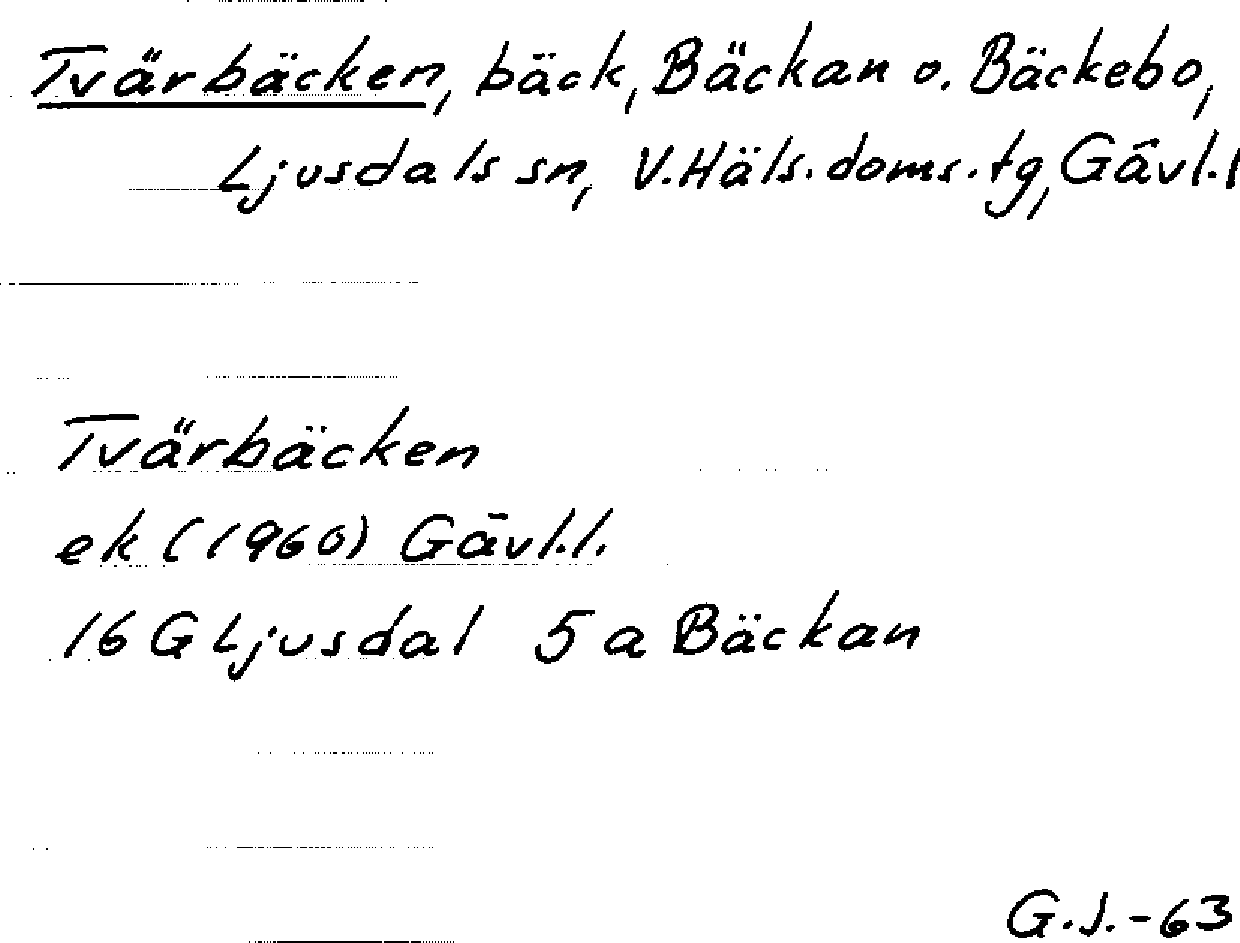 Tvärbäcken, bäck, Bäckan o. Bäckebo,
Ljusdals sn, V.Häls.doms.tg, Gävl.l
Tvärbäcken
ek (1960) Gävl.l.
16 G Ljusdal 5 a Bäckan
G.J.-63